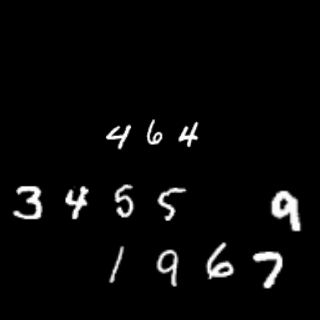 464
3455 9
1967